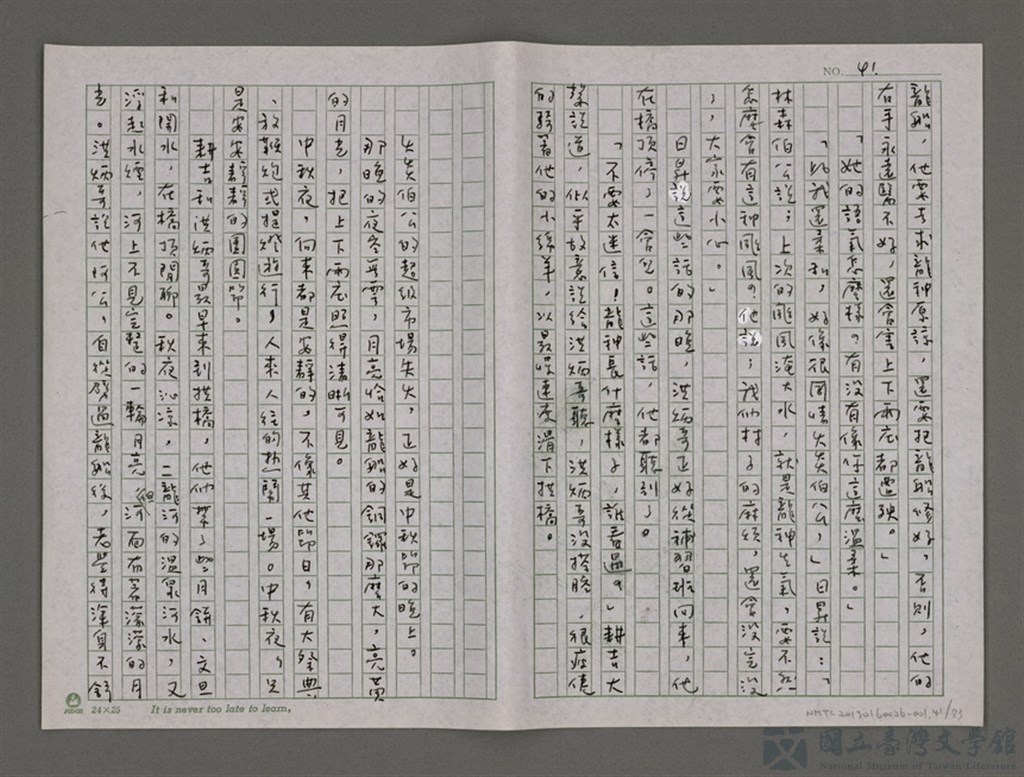 NO. 41.
龍船，他要去求龍神原諒，還要把龍船修好，否則，他的
右手永遠醫不好，還會害上下兩庄都遭殃。」
「她的語氣怎麼樣？有沒有像你這麼溫柔。」
「比我還柔和，好像很同情火炎伯公，」日昇說：「
林森伯公說；上次的颱風淹大水，就是龍神生氣，要不然
怎麼會有這种颱風？他說；我們村子的麻煩，還會沒完沒
了，大家要小心。」
日昇說這些話的那晚，洪炳哥正好從補習班回來，他
在橋頂停了一會兒。這些話，他都聽到了。
「不要太迷信！龍神長什麼樣子，誰看過？」耕吉大
聲說道，似乎故意說給洪炳哥聽，洪炳哥沒搭腔，很疲倦
的騎著他的小綿羊，以最慢速度滑下拱橋。
火炎伯公的超級市場失火，正好是中秋節的晚上。
那晚的夜空無雲，月亮恰如龍船的銅鑼那麼大，亮黃
的月光，把上下兩庄照得清晰可見。
中秋夜，向來都是安靜的，不像其他節日，有大祭典
、放鞭炮或提燈遊行，人來人往的熱鬧一場。中秋夜，只
是安安靜靜的團圓節。
耕吉和洪炳哥最早來到拱橋，他們帶了些月餅、文旦
和開水，在橋頂閒聊。秋夜沁涼，二龍河的溫泉河水，又
浮起水煙，河上不見完整的一輪月亮，但河面有著濛濛的月
光。洪炳哥說他阿公，自從劈過龍船後，老覺得渾身不舒
24×25 It is never too late to learn,
NMTL20130160026-001.41/83
國立臺灣文學館
National Museum of Taiwan Literature